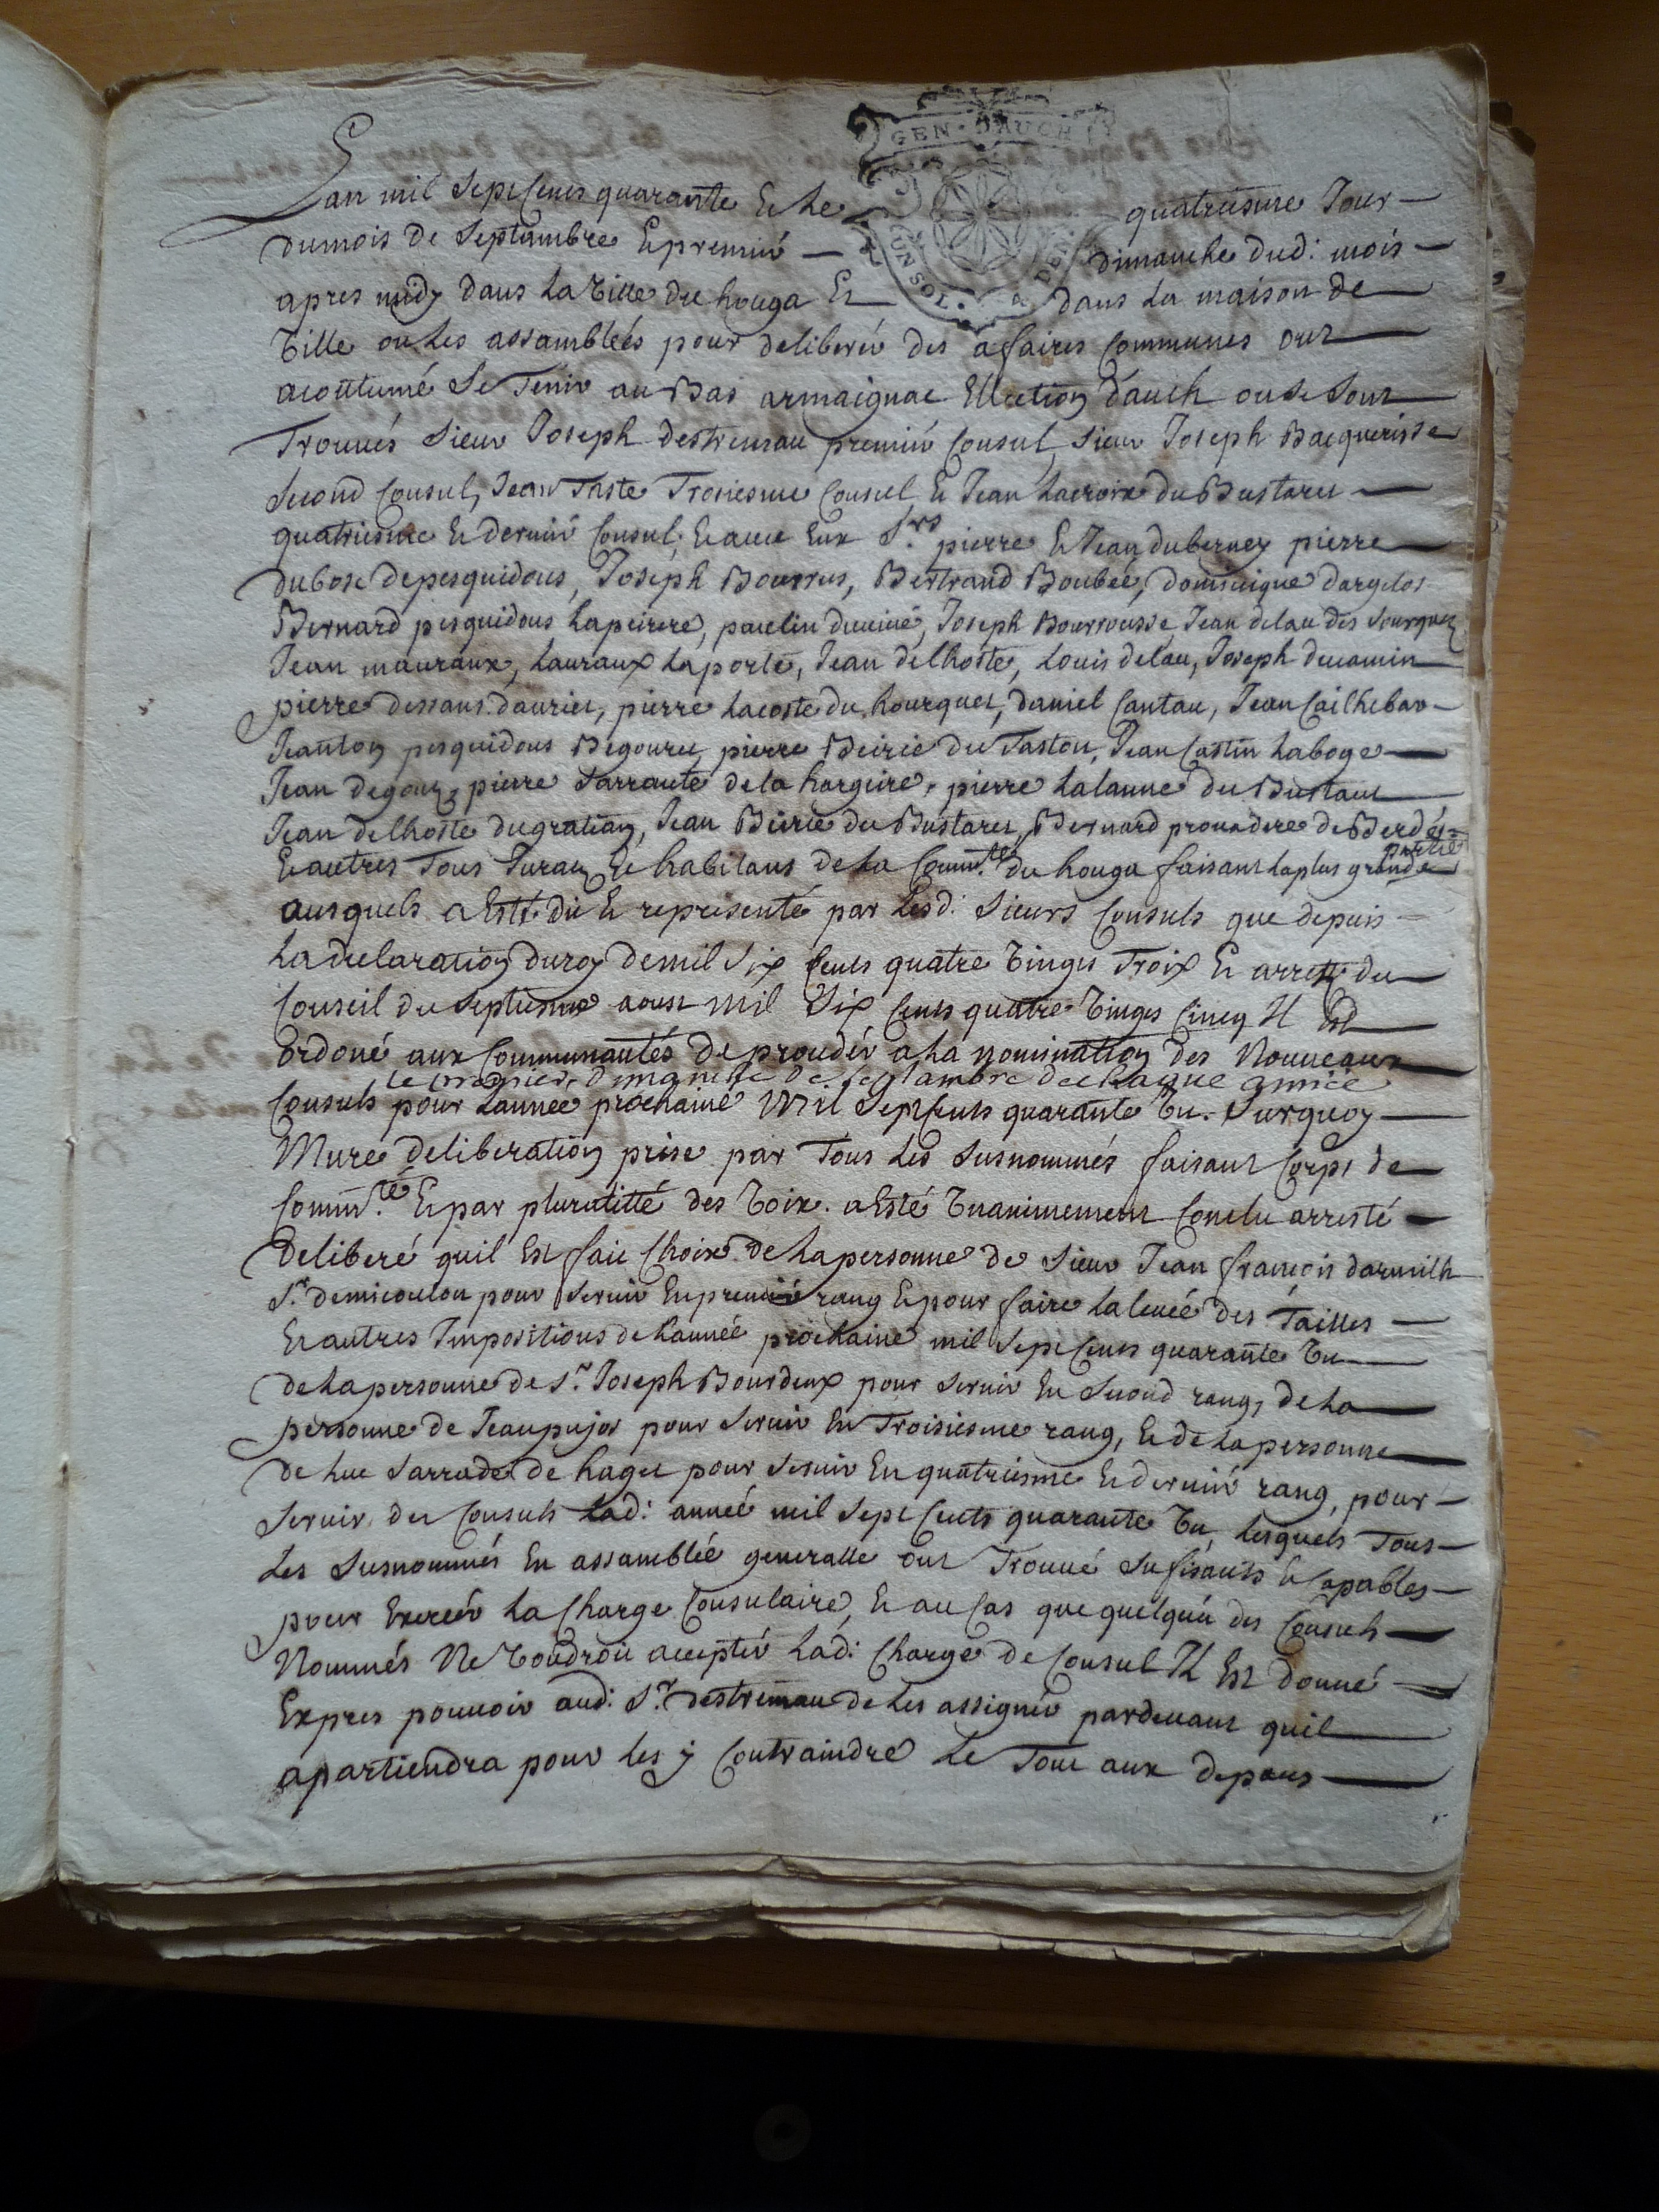 GEN. D'AUCH
UN SOL.
Lan mil sept cens quarante & le quatriesme Jour
dumois de Septambre & premiér dimanche dud: mois
apres midy dans La ville du houga & dans La maison de
ville ou Les assamblées pour deliberér des afaires communes ont
acoutumé Se Tenir au Bas armaignac Ellection d'auch ou se sont
Trouvés Sieur Joseph destremau premiér Consul, Sieur Joseph Bacquerisse
Second Consul, Jean Taste Troisiesme Consul & Jean Lacroix du Bustaret
quatriesme & derniér Consul; & avec Eux Srs. pierre & Jean duberney pierre
dubosc de pesquidous, Joseph Bourrus, Bertrand Boubée, dominique dargelos
Bernard pesquidous Lapeirere, paulin , Joseph Bourrousse Jean delau des
Jean mauraux, Lauraux Laporte, Jean delhoste, Louis delau, Joseph ducamin
pierre dessans dauriet, pierre Lacoste du hourquet, daniel Cantau, Jean Cailhebar
Jeanton pesquidous Begouret, pierre Beirie du Taston, Jean Castin Laboge
Jean degouy, pierre Sarraute de la hargeire, pierre Lalanne du Bustaret
Jean delhoste dugratian, Jean Beirie du Bustaret, Bernard prouadere de Berdés
& autres Tous Juraz & habitans de La Commté. du houga faisant La plus grande partie
ausquels a Esté dit & representé par Lesd: Sieurs Consuls que depuis
La declaration du roy de mil Six Cents quatre vingts Troix & arrest du
Conseil du Septiesme aoust mil Six Cents quatre vingts Cincq Il Est
ordoné aux Communautés de prouder a La nomination des Nouveaux
le premier dimanche de septambre de chaque année
Consuls pour Lannée prochaine mil Sept Cents quarante vn. Surquoy
Mure deliberation prise par Tous Les Susnommés faisant Corps de
Commté. & par pluralitté des voix. a Esté vnanimement Conclu arresté
deliberé quil Est fait Choix de La personne de Sieur Jean françois darmilh
Sr. demicoulou pour Servir En premiér rang & pour faire La levée des Tailles
& autres Impositions de Lannée prochaine mil Sept Cents quarante vn
de La personne de Sr. Joseph Bourdeux pour Servir En Second rang, de La
personne de Jean pujos pour Servir En Troisiesme rang, & de La personne
de Luc Sarrade de haget pour Servir En quatriesme & derniér rang, pour
Servir de Consuls Lad: année mil Sept Cents quarante vn, Lesquels Tous
Les Susnommés En assamblée generalle ont Trouvé Sufisants & Capables
pour Exercér La Charge Consulaire, & au Cas que quelquun des Consuls
Nommés Ne voudroit acceptér Lad: Charge de Consul Il Est donné
Expres pouvoir aud: Sr. destremau de Les assignér pardevant quil
apartiendra pour Les y Contraindre Le Tout aux depans